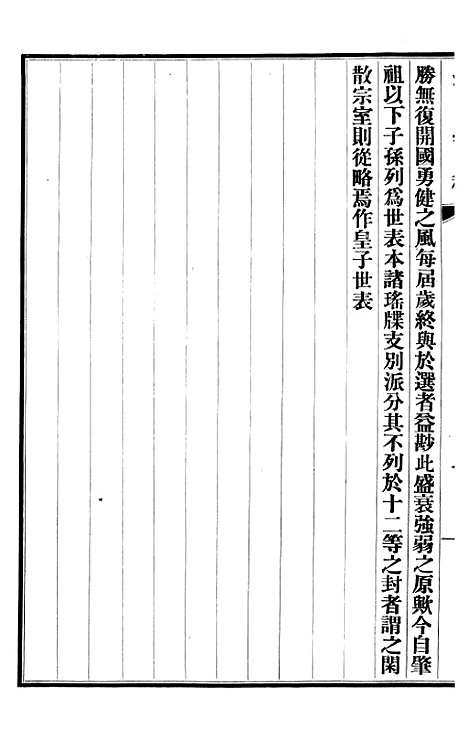 勝無復開國勇健之風每屆歲終與於選者益尠此盛衰強弱之原歟今自肇
祖以下子孫列爲世表本諸瑤牒支別派分其不列於十二等之封者謂之閑
散宗室則從略焉作皇子世表